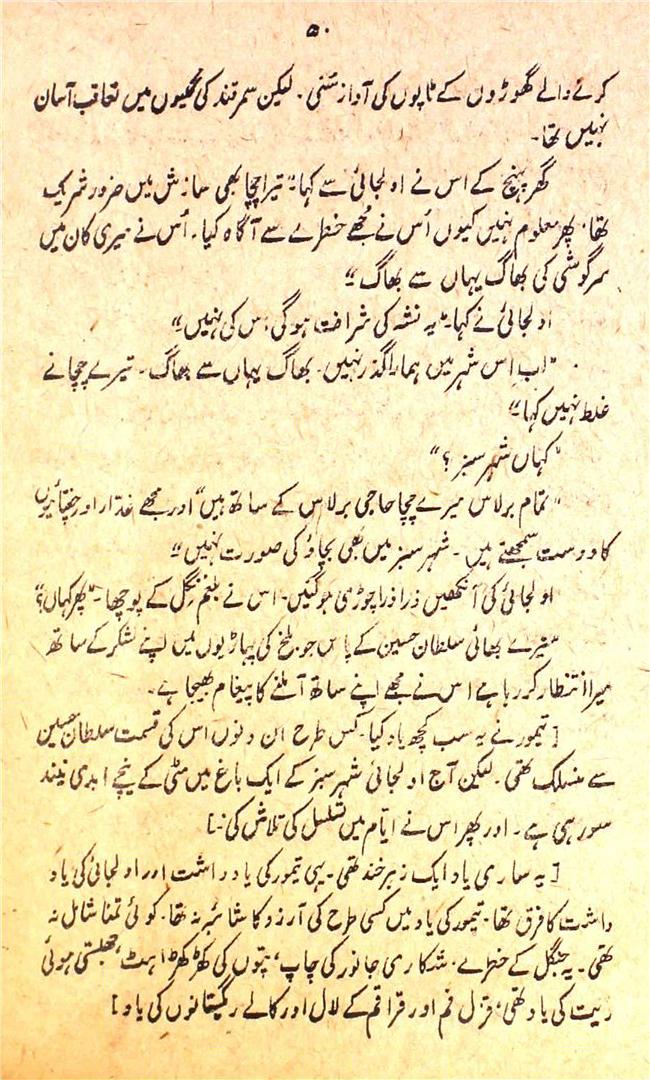 ۵۰
کرنے والے گھوڑوں کے ٹاپوں کی آواز سُنی ۔ لیکن سمرقند کی گلیوں میں تعاقب آسان
نہیں تھا۔
گھر پہنچ کے اس نے اولجائی سے کہا: "تیرا چچا بھی سازش میں ضرور شریک
تھا۔ پھر معلوم نہیں کیوں اُس نے مجھے خطرے سے آگاہ کیا۔ اُس نے میری کان میں
سرگوشی کی بھاگ یہاں سے بھاگ"
اولجائی نے کہا۔ "یہ نشہ کی شرافت ہوگی اس کی نہیں"
"اب اِس شہر میں ہمارا گذر نہیں۔ بھاگ یہاں سے بھاگ۔ تیرے چچا نے
غلط نہیں کہا"
"کہاں شہر سبز؟"
"تمام برلاس میرے چچا حاجی برلاس کے ساتھ ہیں" اور مجھے غدار اور چغتائیوں
کا دوست سمجھتے ہیں۔ شہر سبز میں بھی بچاؤ کی صورت نہیں"
اولجائی کی آنکھیں ذرا ذرا چوڑی ہوگئیں۔ اس نے بلغم نگل کے پوچھا۔ "پھر کہاں؟"
"تیرے بھائی سلطان حسین کے پاس جو بلخ کی پہاڑیوں میں اپنے لشکر کے ساتھ
میرا انتظار کر رہا ہے اس نے مجھے اپنے ساتھ آملنے کا پیغام بھیجا ہے۔
[ تیمور نے یہ سب کچھ یاد کیا۔ کس طرح ان دنوں اس کی قسمت سلطان حسین
سے منسلک تھی۔ لیکن آج اولجائی شہر سبز کے ایک باغ میں مٹی کے نیچے ابدی نیند
سو رہی ہے۔ اور پھر اس نے ایّام میں تسلسل کی تلاش کی۔]
[ یہ ساری یاد ایک زہرخند تھی۔ یہی تیمور کی یادداشت اور اولجائی کی یاد
داشت کا فرق تھا۔ تیمور کی یاد میں کسی طرح کی آرزو کا شائبہ نہ تھا۔ کوئی تمنا شامل نہ
تھی۔ یہ جنگل کے خطرے، شکاری جانور کی چاپ، پتوں کی کھڑکھڑاہٹ، جھلستی ہوئی
ریت کی یاد تھی، قزل قم اور قراقم کے لال اور کالے ریگستانوں کی یاد]